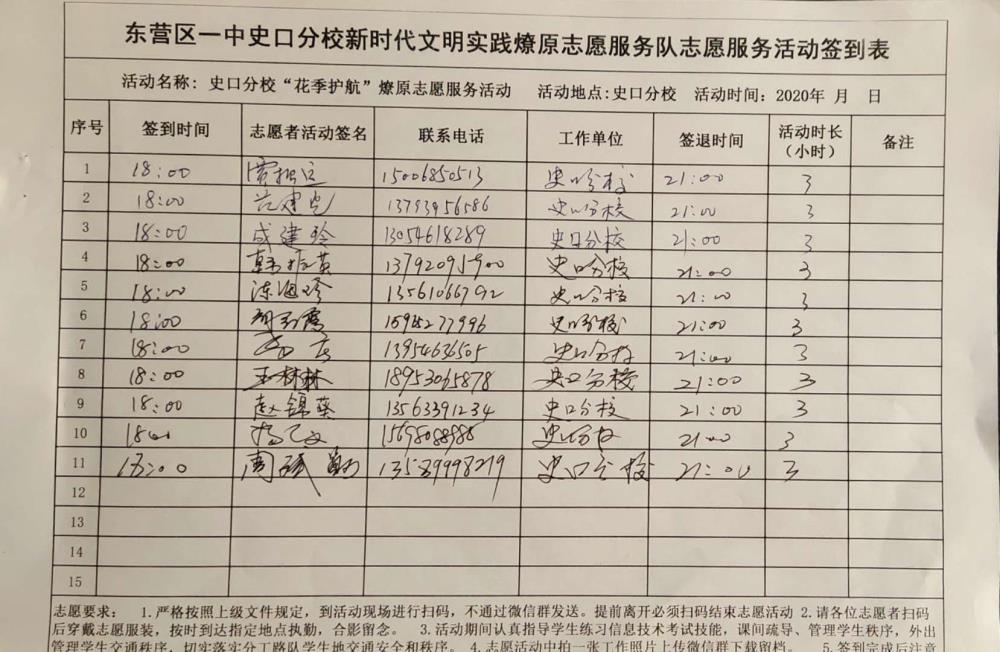 东营区一中史口分校新时代文明实践燎原志愿服务队志愿服务活动签到表
活动名称: 史口分校“花季护航”燎原志愿服务活动 活动地点:史口分校 活动时间: 2020年 月 日
序号 签到时间 志愿者活动签名 联系电话 工作单位 签退时间 活动时长（小时） 备注
1 18:00 15006850513 史口分校 21:00 3
2 18:00 13793956586 史口分校 21:00 3
3 18:00 成建玲 13054618289 史口分校 21:00 3
4 18:00 韩振英 史口分校 21:00 3
5 18:00 陈海珍 13561066792 史口分校 21:00 3
6 18:00 史口分校 21:00 3
7 18:00 13954636505 史口分校 21:00 3
8 18:00 王林林 18953065878 史口分校 21:00 3
9 18:00 赵锦葵 13563391234 史口分校 21:00 3
10 史口分校 21:00 3
11 18:00 13589998219 史口分校 21:00 3
12
13
14
15
志愿要求: 1.严格按照上级文件规定，到活动现场进行扫码，不通过微信群发送。提前离开必须扫码结束志愿活动 2.请各位志愿者扫码
后穿戴志愿服装，按时到达指定地点执勤，合影留念。 3.活动期间认真指导学生练习信息技术考试技能，课间疏导、管理学生秩序，外出
管理学生交通秩序，切实落实分工路队学生地交通安全和秩序。 4.志愿活动中拍一张工作照片上传微信群下载留档。 5.签到完成后注意